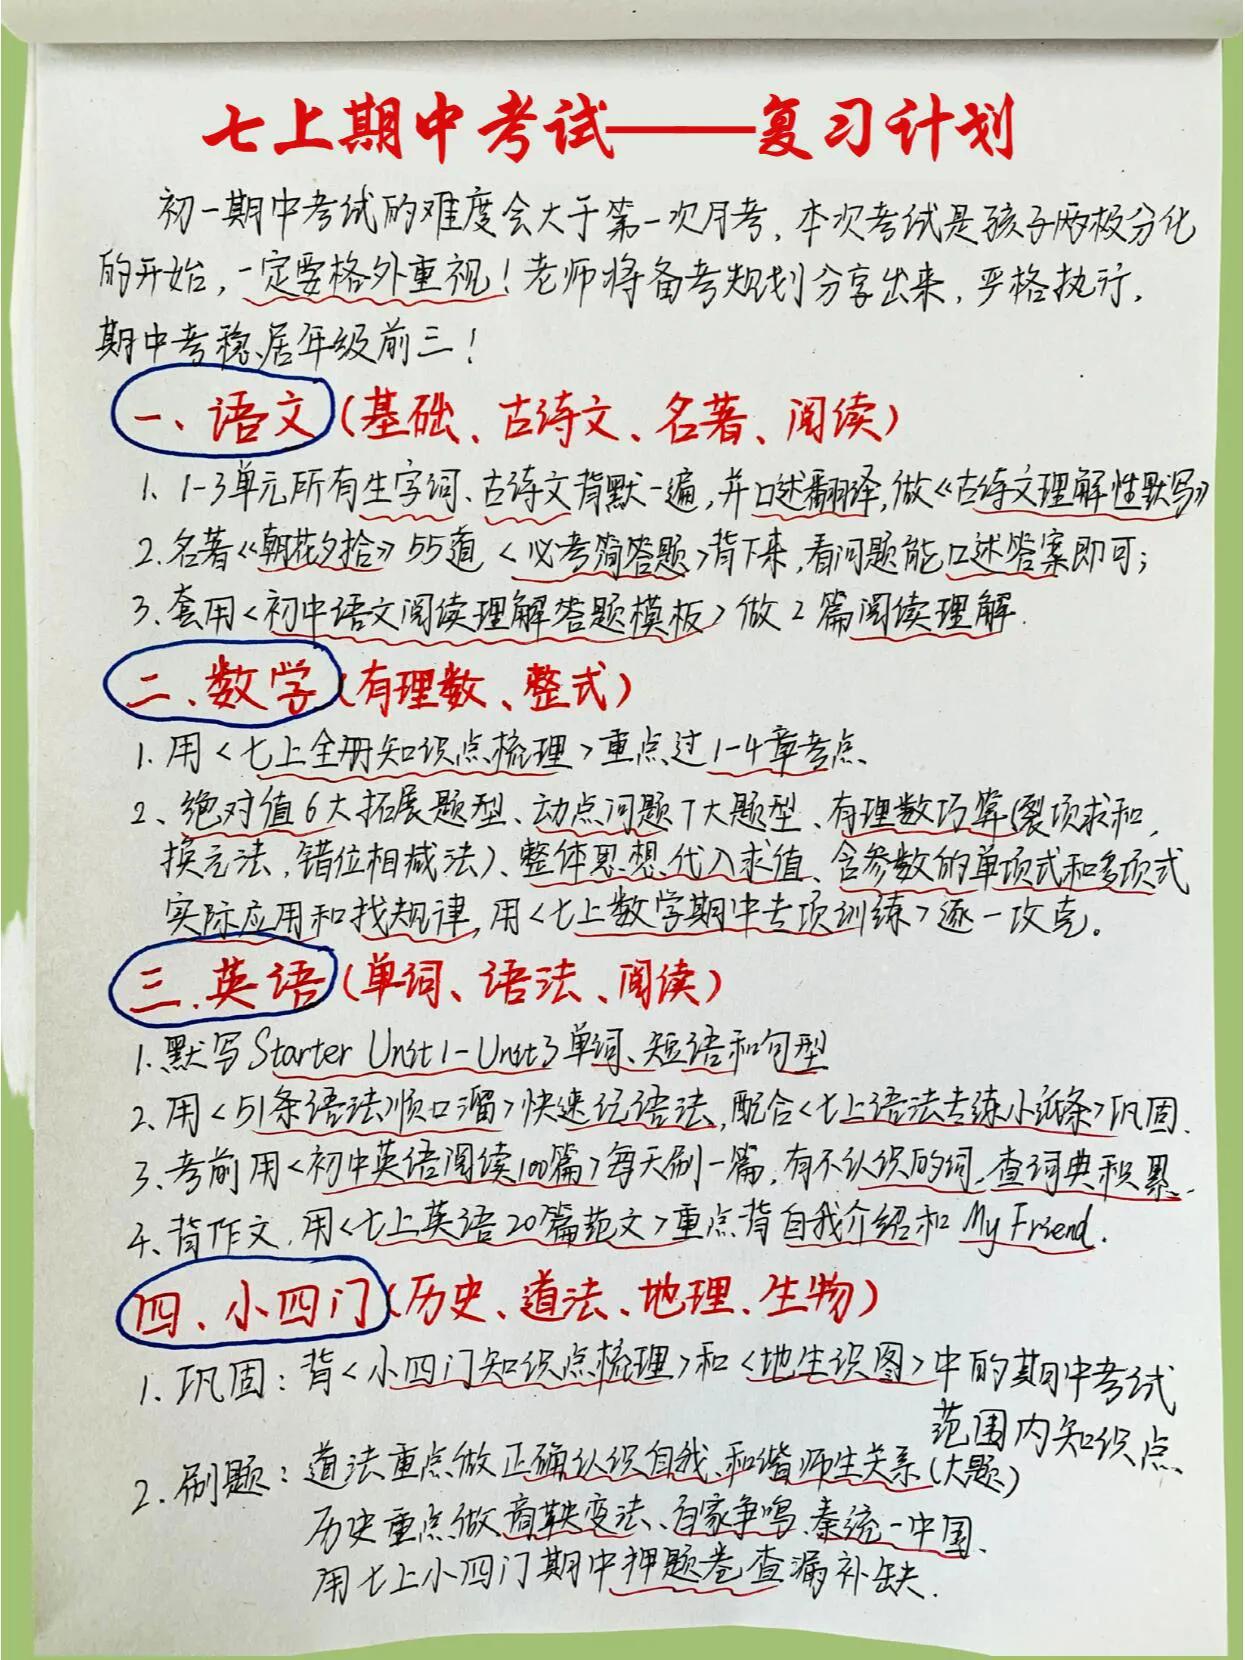 七上期中考试——复习计划
初一期中考试的难度会大于第一次月考，本次考试是孩子两极分化
的开始，一定要格外重视！老师将备考规划分享出来，严格执行，
期中考稳居年级前三！
一、语文（基础、古诗文、名著、阅读）
1、1-3单元所有生字词、古诗文背默一遍，并口述翻译，做《古诗文理解性默写》
2.名著《朝花夕拾》55道<必考简答题>背下来，看问题能口述答案即可；
3.套用<初中语文阅读理解答题模板>做2篇阅读理解.
二、数学（有理数、整式）
1.用<七上全册知识点梳理>重点过1-4章考点
2、绝对值6大拓展题型、动点问题7大题型、有理数巧算(裂项求和，
换元法，错位相减法)、整体思想代入求值、含参数的单项式和多项式
实际应用和找规律，用<七上数学期中专项训练>逐一攻克。
三.英语（单词、语法、阅读）
1.默写Starter Unit1-Unit3单词、短语和句型
2、用<51条语法顺口溜>快速记语法，配合<七上语法专练小纸条>巩固.
3.考前用<初中英语阅读100篇>每天刷一篇，有不认识的词，查词典积累.
4、背作文，用<七上英语20篇范文>重点背自我介绍和My Friend.
四、小四门（历史、道法、地理、生物）
1.巩固：背<小四门知识点梳理>和<地生识图>中的期中考试
范围内知识点
2.刷题：道法重点做正确认识自我、和谐师生关系(大题)
历史重点做商鞅变法、百家争鸣、秦统一中国.
用七上小四门期中押题卷查漏补缺.